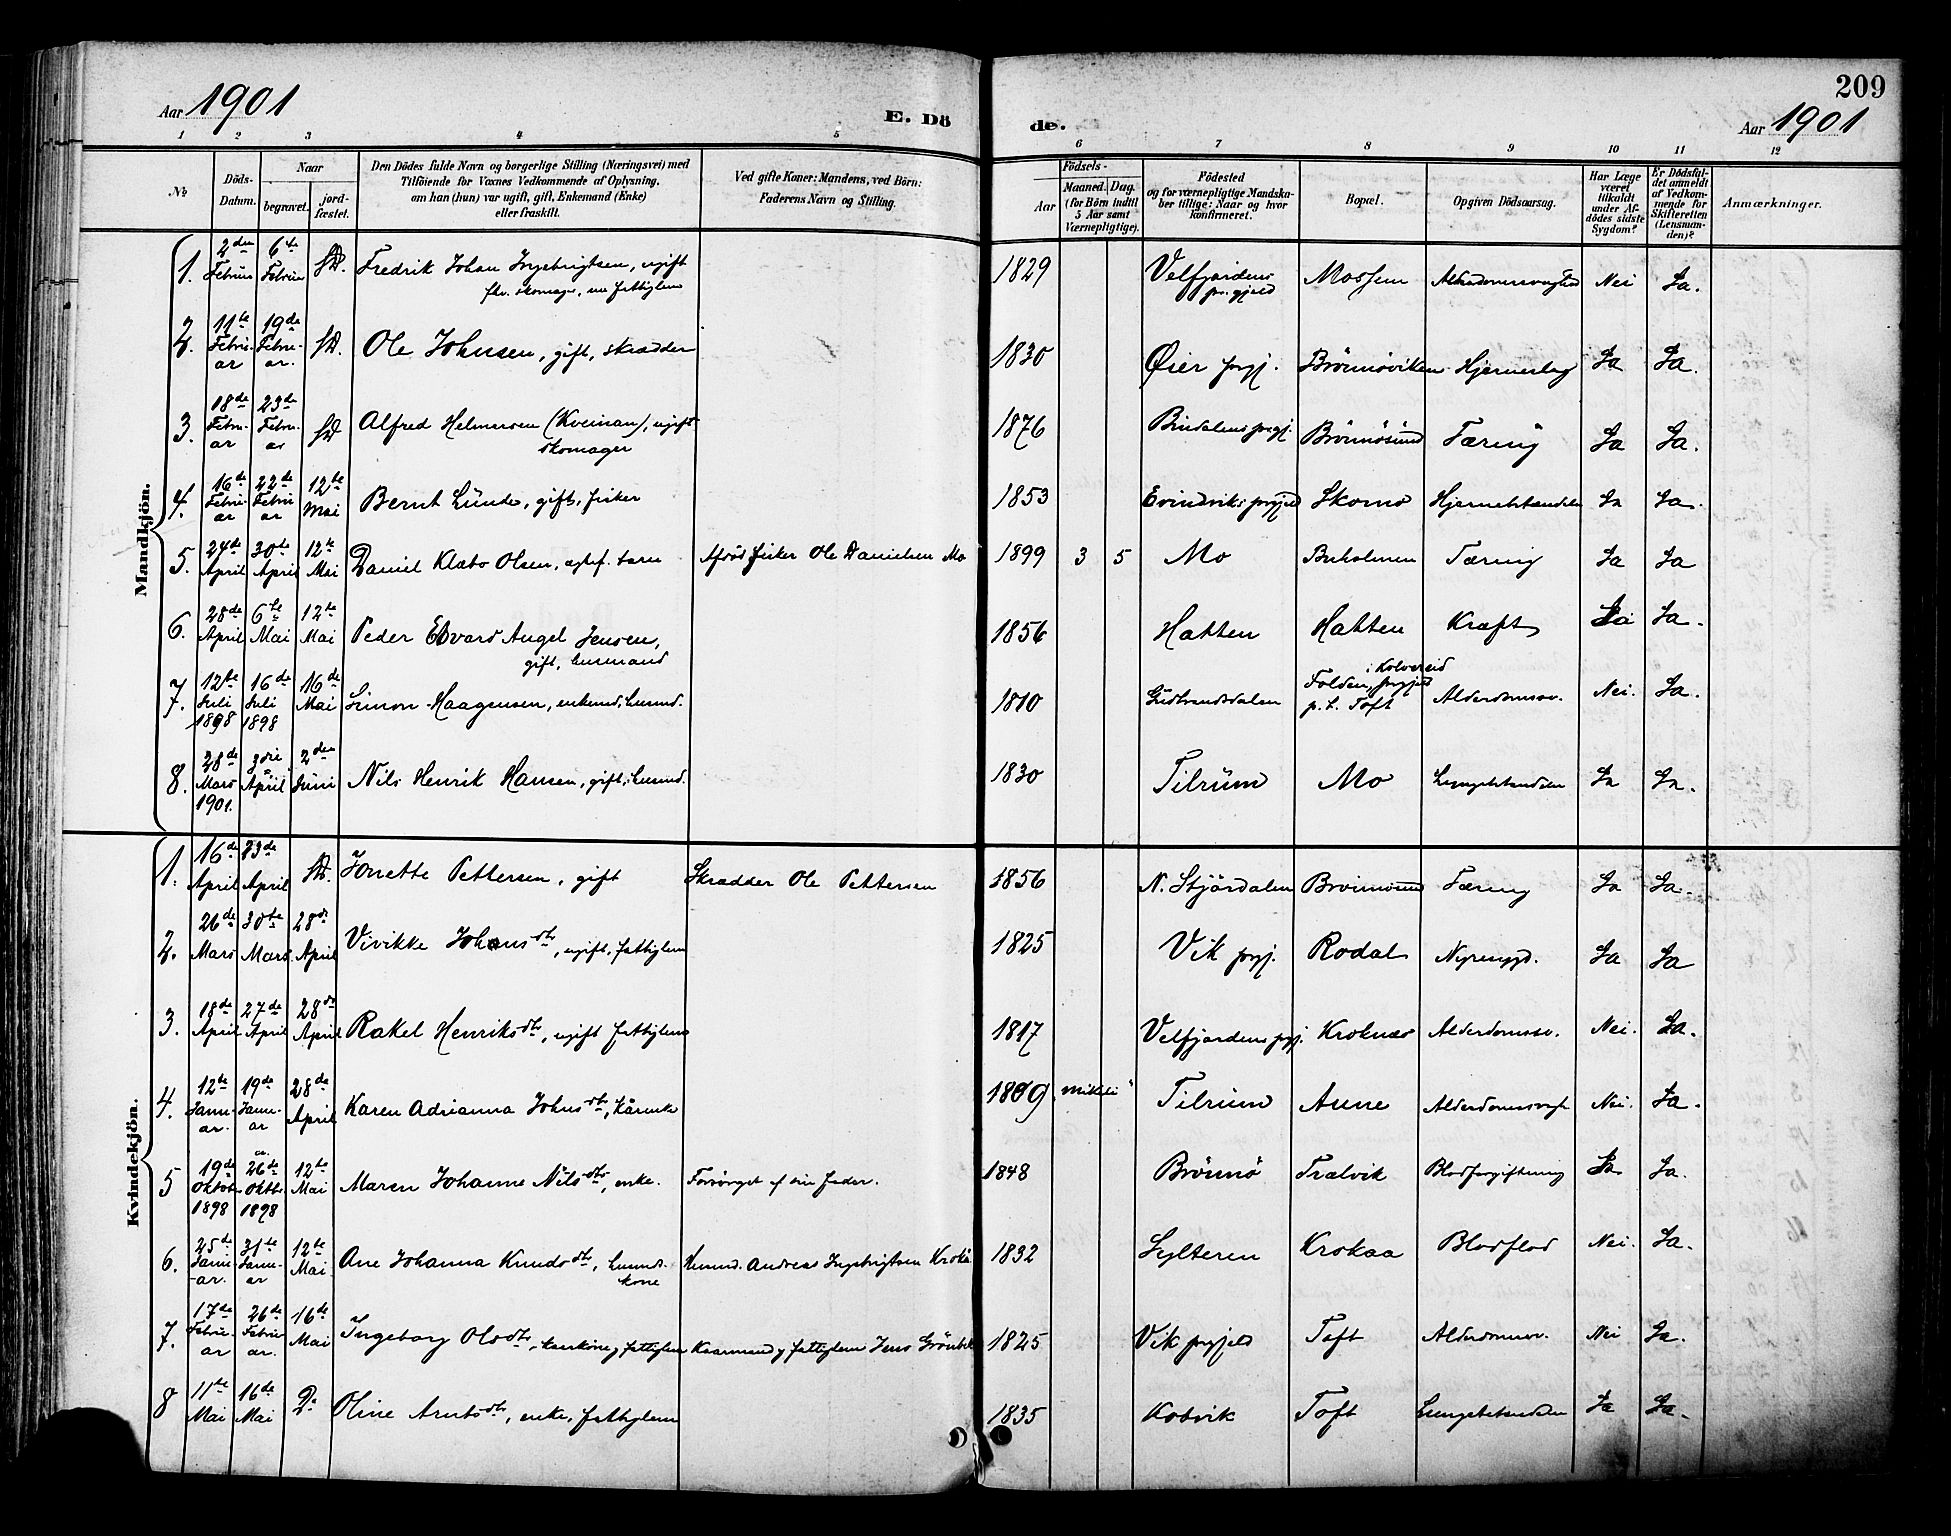 209
Aar 1901
E. Dö
de.
Aar 1901
1 2 3 4 5 6 7 8 9 10 11 12
No
Döds-Datum.
Naar
begravet.
jord-fæstet.
Den Dödes fulde Navn og borgerlige Stilling (Næringsvei) med
Tilföiende for Voxnes Vedkommende af Oplysning,
om han (hun) var ugift, gift, Enkemand (Enke)
eller fraskilt.
Ved gifte Koner: Mandens, ved Börn:
Faderens Navn og Stilling.
Födsels-
Aar
Maaned. Dag.
(for Börn indtil
5 Aar samt
Værnepligtige).
Födested
og for værnepligtige Mandska-
ber tillige: Naar og hvor
konfirmeret.
Bopæl.
Opgiven Dödsaarsag.
Har Læge
været
tilkaldt
under Af-
dödes sidste
Sygdom?
Er Dödsfal-
det anmeldt
af Vedkom-
mende for
Skifteretten
(Lensman-
den)?
Anmærkninger.
Mandkjön.
1. 2den Februar 6te Februar Fredrik Johan Ingebrigtsen, ugift 1829 Velfjordens Nei Ja.
skomager, fattiglem prgjeld
2. 11te Febru-ar 19de Febru-ar. Ole Johnsen, gift, skrædder 1830 Øier prgj. Brönnöviken Hjerneslag Ja Ja.
3. 18de Febru-ar 23de Febru-ar Alfred Helmersen (Kveinan), ugift 1876 Bindalens prgj. Brönnösund Tæring Ja Ja.
skomager
4. 16de Febru-ar 22de Febru-ar 12te Mai Bernt Lünde, gift, fisker 1853 Evindviks prgjeld Skomo Hjernebetændelse Ja Ja.
5. 24de April 30te April 12te Mai Daniel Klabo Olsen, ægtef. barn fisker Ole Danielsen Mo 1899 3 5 Mo Buholmen Tæring Ja Ja
6. 28de April 6te Mai 12te Mai Peder Edvard Angel Jensen, 1856 Hatten Hatten Kræft Ja Ja.
gift, husmand
7. 12te Juli 1898 16de Juli 1898 16de Mai Simon Haagensen, enkemd, husmd. 1810 Gudbrandsdalen Folden, i Kolvereid prgjeld p.t. Toft Alderdomssv. Nei. Ja.
8. 28de Mars 1901. 3die April 2den Juni Nils Henrik Hansen, gift, husmd. 1830 Tilrüm Mo Lungebetændelse Ja Ja.
Kvindekjön.
1. 16de April 23de April Jonette Pettersen, gift Skrædder Ole Pettersen 1856 N. Stjördalen Brönnösund Tæring Ja Ja.
2. 26de Mars 30te Mars. 28de April Vivikke Johansdtr, ugift, fattiglem 1825 Vik prgj. Rodal Nyresygd. Ja Ja
3. 18de April 27de April 28de April Rakel Henriksdtr, ugift fattiglem 1817 Velfjordens prgj. Kroknes Alderdomssv. Nei. Ja.
4. 12te Janu-ar. 19de Janu-ar 28de April Karen Adrianna Johnsdtr, 1809 Tilrüm Aune Alderdomssvagh Nei. Ja.
5 19de Oktob 1898 26de Oktb. 1898 12te Mai Maren Johanne Nilsdtr, enke. Forsörget af sin fader. 1848 Brönnö Trælvik Blodforgiftning Ja Ja.
6. 25de Janu-ar. 31te Janu-ar 12te Mai Ane Johanna Knudsdtr, husmds. kone Husmd. Andreas Ingebrigtsen Krokå 1832 Sylteren Krokaa Blodflod Nei. Ja.
7. 17de Febru-ar 26de Febru-ar. 16de Mai Ingeborg Olsdtr, kaarkone, fattiglem Kaarmand og fattiglem Jens 1825 Vik prgjeld Toft Alderdomssv. Nei Ja.
8 11te Mai 16de Mai Do Oline Arntsdtr, enke, fattiglem 1835 Kobvik Toft Lungebetændelse Ja Ja.